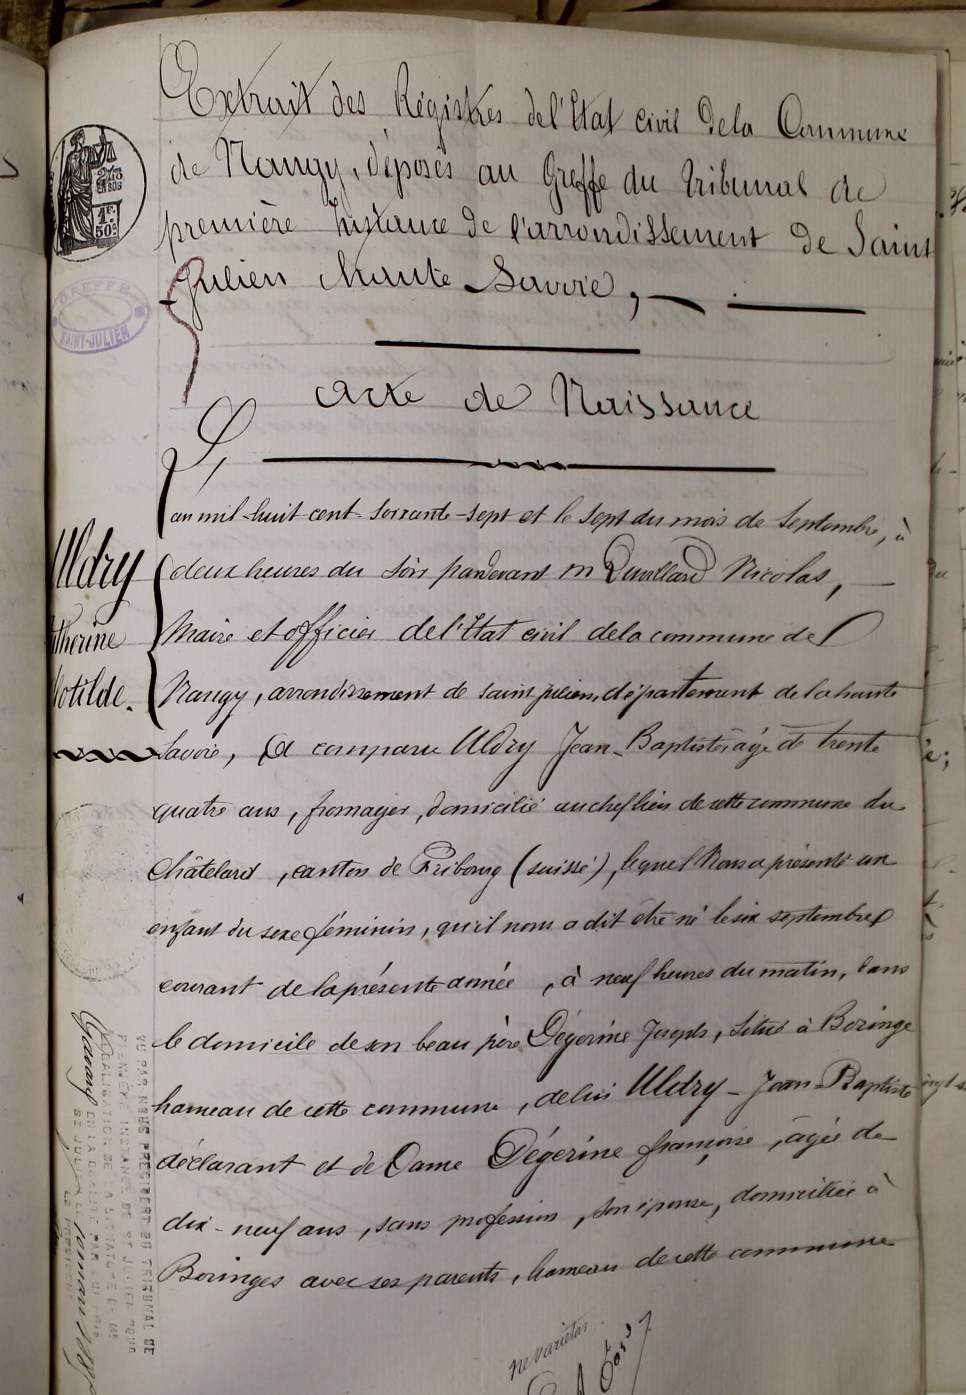 Extrait des Régistres de l'Etat civil de la Commune
de Nangy, déposés au Greffe du tribunal de
première Instance de l'arrondissement de Saint
Julien Haute Savoie, —
2/10
EN SUS
1F.
50c
GREFFE
SAINT-JULIEN
Acte de Naissance
L'
an mil-huit cent-soixante-sept et le sept du mois de septembre, à
deux heures du soir pardevant m Duvillard Nicolas, —
Maire et officier de l'Etat civil de la commune de
Nangy, arrondissement de saint julien, département de la haute
Savoie, A comparu Uldry Jean-Baptiste âgé de trente
quatre ans, fromager, domicilié au chef lieu de cette commune du
Châtelard, canton de Fribourg (suisse), lequel Nous a présenté un
enfant du sexe féminin, qu'il nous a dit être né le six septembre
courant de la présente année, à neuf heures du matin, dans
le domicile de son beau père Dégerine Joseph, situé à Boringe
hameau de cette commune, de lui Uldry-Jean-Baptiste
déclarant et de Dame Dégerine françoise, âgée de
dix-neuf ans, sans profession, son épouse, domiciliée à
Boringes avec ses parents, hameau de cette commune
Uldry
therine
lotilde.
VU PAR NOUS PRESIDENT DU TRIBUNAL DE
PREMIÈRE INSTANCE DE ST JULIEN POUR
LEGALISATION DE LA SIGNATURE DE
ne varietur